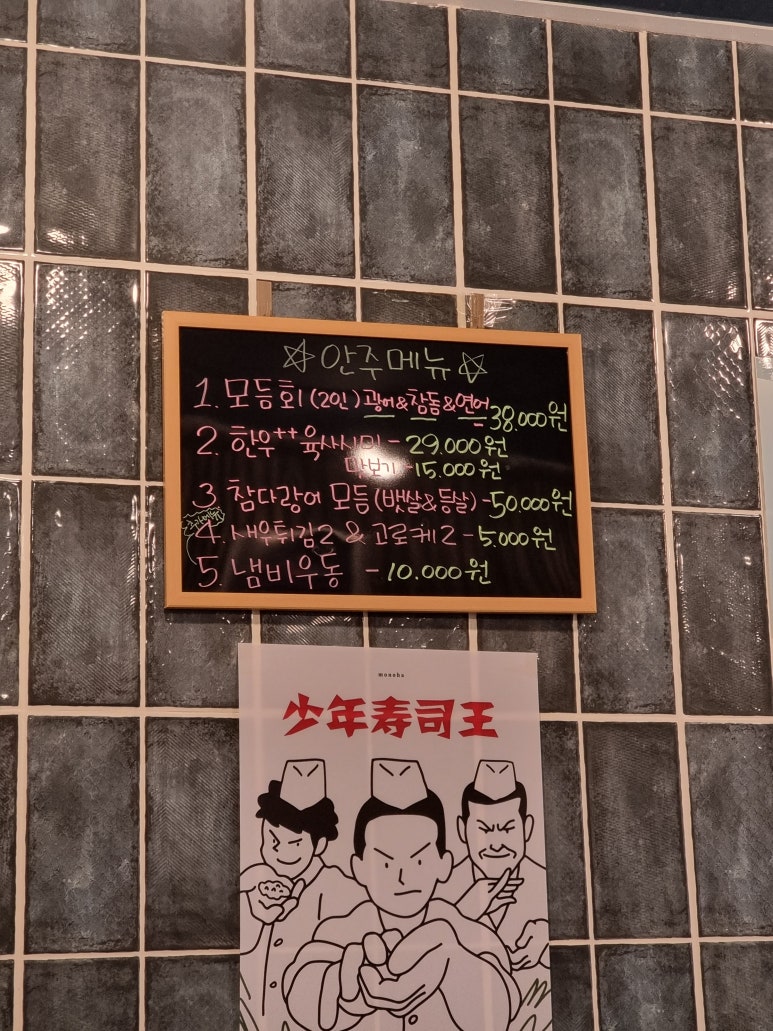 ☆안주메뉴☆
1. 모듬회 (2인) 광어&참돔&연어 38.000원
2. 한우++ 육사시미 - 29.000원
맛보기 - 15.000원
3. 참다랑어 모듬 (뱃살&등살) - 50.000원
4. 새우튀김2 & 고로케2 - 5.000원
5. 냄비우동 - 10.000원
monoha
少年寿司王